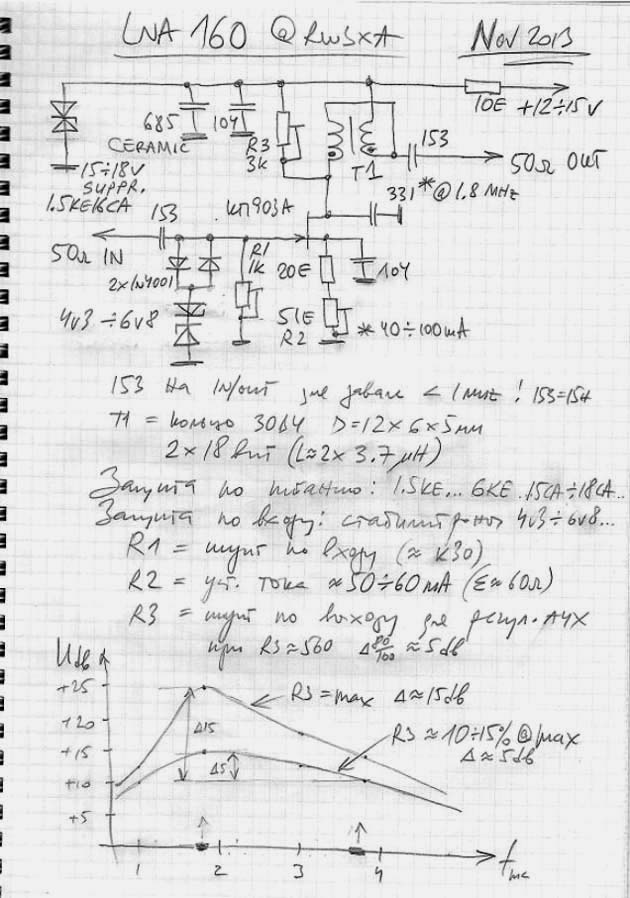 LNA 160 @RW3XA
Nov 2013
10E +12÷15V
685
CERAMIC
104
R3
3k
T1
153
50Ω OUT
15÷18V
SUPPR.
1.5KE16CA
331* @1.8MHz
153
КП903А
50Ω IN
2x1N4001
R1
1k
20E
104
4V3÷6V8
51E
R2
* 40÷100mA
153 на IN/OUT для завала < 1MHz! 153=15H
T1 = кольцо 30В4 D=12x6x5мм
2x18 вит (L≈2x3.7μH)
Защита по питанию: 1.5KE... 6KE.15CA÷18CA...
Защита по входу: стабилитроны 4V3÷6V8...
R1 = шунт по входу (≈ КЗО)
R2 = уст. тока ≈50÷60mA (Σ≈60Ω)
R3 = шунт по выходу для регул. АЧХ
при R3≈560 Δ 80/160 ≈5db
Udb
+25
+20
+15
+10
+5
R3=max Δ≈15db
Δ15
R3≈10÷15% @max
Δ≈5db
Δ5
1 2 3 4 fмгс